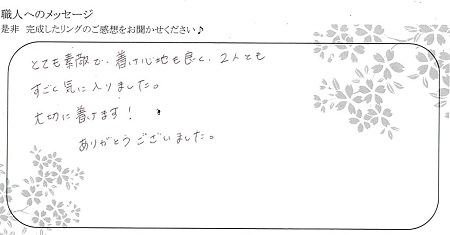 職人へのメッセージ
是非 完成したリングのご感想をお聞かせください♪
とても素敵で、着け心地も良く、2人とも
すごく気に入りました。
大切に着けます!
ありがとうございました。